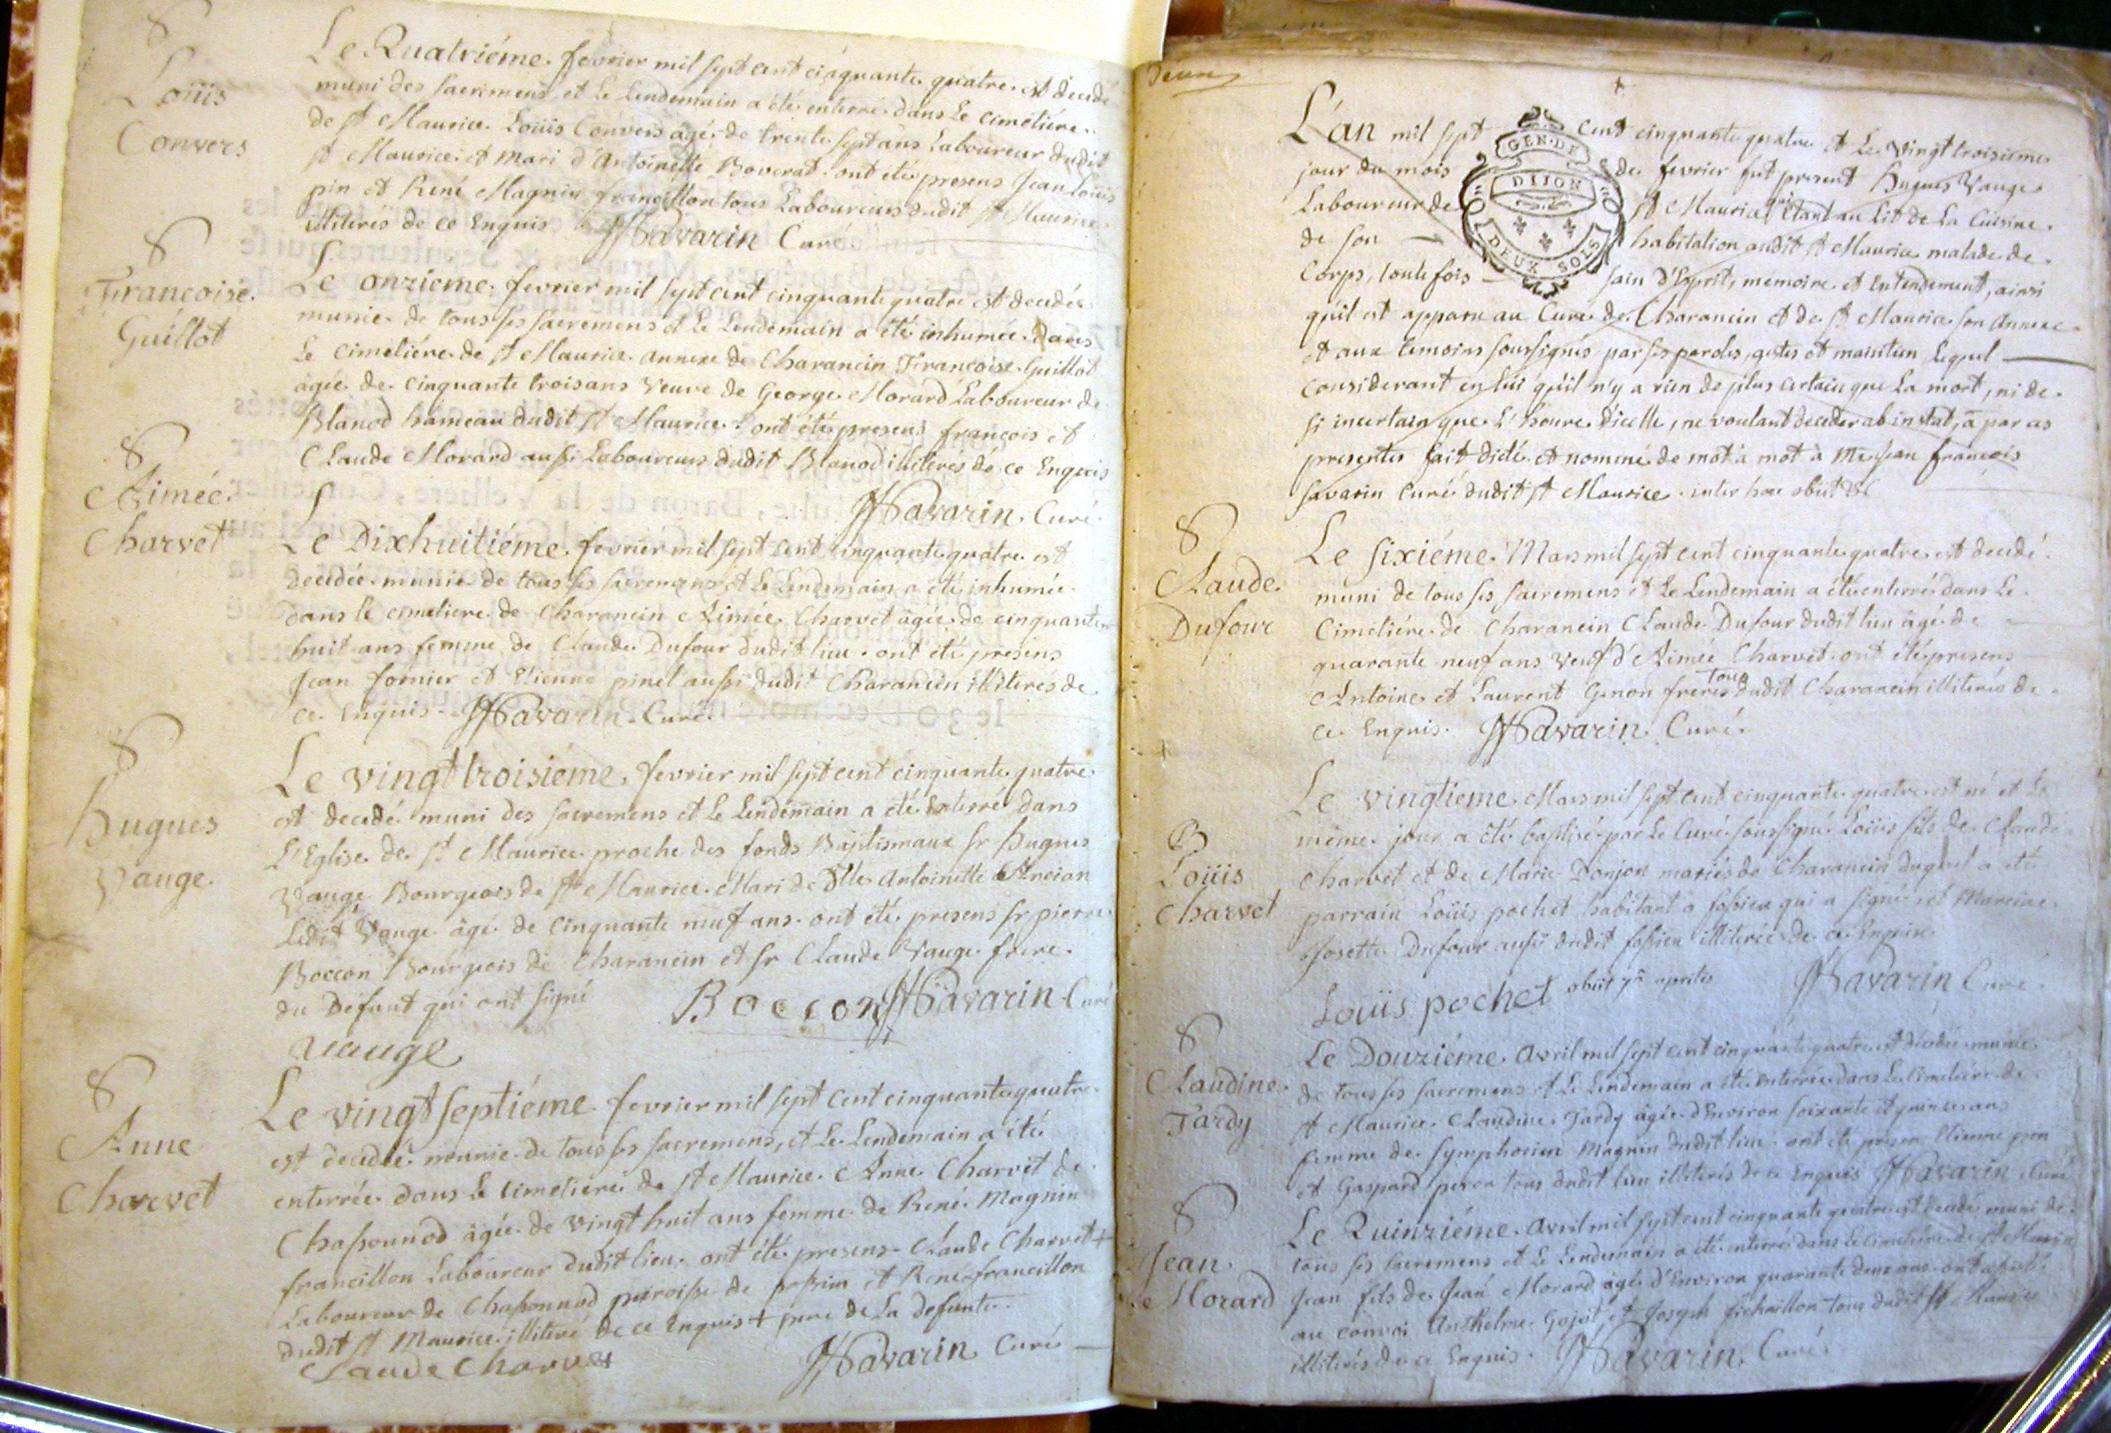 S
Loüis
Convers
Le Quatriéme fevrier mil sept cent cinquante quatre est decedé
muni des sacremens et le Lendemain a été enterré dans Le cimetiére
de St Maurice Loüis Convers âgé de trente sept ans Laboureur dudit
St Maurice et mari d'Antoinette Boverat ont été presens Jean Loüis
pin et René Magnin francillon tous Laboureurs dudit St Maurice
illiterés de ce Enquis JfSavarin Curé
S
Françoise
Guillot
Le onzieme fevrier mil sept cent cinquante quatre est decedée
munie de tous ses sacremens et le Lendemain a été inhumée Dans
Le cimetiére de St Maurice annexe de Charancin Françoise Guillot
âgée de cinquante trois ans Veuve de George Morard Laboureur de
Blanod hameau dudit St Maurice ont été presens françois et
Claude Morard aussi Laboureurs dudit Blanod illiterés de ce Enquis
JfSavarin Curé
S
Aimée
Charvet
Le Dixhuitiéme fevrier mil sept cent cinquante quatre est
decedée munie de tous ses sacremens et Le Lendemain a été inhumée
dans le cimetiere de Charancin Aimée Charvet âgée de cinquante
huit ans femme de Claude Dufour dudit lieu ont été presens
Jean fornier et Etienne pinel aussi dudit Charancin illiterés de
ce Enquis JfSavarin Curé
S
Hugues
Vauge
Le vingt troisiéme fevrier mil sept cent cinquante quatre
est decedé muni des sacremens et le Lendemain a été Enterré dans
L'Eglise de St Maurice proche des fonds Baptismaux Sr Hugues
Vauge Bourgeois de St Maurice Mari de Dlle Antoinette Ancian
Ledit Vauge âgé de cinquante neuf ans ont été presens Sr pierre
Boccon Bourgeois de Charancin et Sr Claude Vauge frere
du Defunt qui ont signé Boccon JfSavarin Curé
vauge
S
Anne
Charvet
Le vingt septiéme fevrier mil sept cent cinquante quatre
est decedée munie de tous ses sacremens, et Le Lendemain a été
enterrée dans Le cimetiére de St Maurice Anne Charvet de
Chassonnod âgée de vingt huit ans femme de René Magnin
francillon Laboureur dudit lieu ont été presens Claude Charvet +
Laboureur de Chassonnod paroisse de et René francillon
dudit St Maurice illiteré de ce Enquis + pere de La defunte
Claude Charvet JfSavarin Curé
L'an mil sept cent cinquante quatre et Le Vingt troisieme
jour du mois de fevrier fut present Hugues Vauge
Laboureur de St Maurice qui étant au Lit de La Cuisine
de son habitation audit St Maurice malade de
Corps, toutefois sain d'Esprit, memoire et Entendement, ainsi
qu'il est apparu au Curé de Charancin et de St Maurice son annexe
et aux temoins soussignés par ses paroles, gestes et maintien Lequel
considerant en lui qu'il n'y a rien de plus certain que La mort, ni de
si incertain que L'heure D'icelle, ne voulant deceder ab intestat, a par ces
presentes fait dicté et nommé de mot à mot à Mre Jean francois
Savarin Curé dudit St Maurice inter hoc obiit
GEN. DE
DIJON
DEUX SOLS
S
Claude
Dufour
Le Sixiéme Mars mil sept cent cinquante quatre est decedé
muni de tous ses sacremens et Le Lendemain a été enterré dans Le
Cimetiére de Charancin Claude Dufour dudit lieu âgé de
quarante neuf ans veuf d'Aimée Charvet ont été presens
Antoine et Laurent Genon freres tous dudit Charancin illiterés de
ce Enquis JfSavarin Curé
B
Loüis
Charvet
Le vingtieme Mars mil sept cent cinquante quatre est né et Le
même jour a été baptisé par Le Curé soussigné Loüis fils de Claude
Charvet et de Marie Donjon mariés de Charancin duquel a été
parrain Loüis pochet habitant a fossieu qui a signé et Marraine
Josette Dufour aussi dudit fossieu illiterée de ce Enquise
Loüis pochet obiit 7a aprilis JfSavarin Curé
S
Claudine
Tardy
Le Douziéme avril mil sept cent cinquante quatre est decedée munie
de tous ses sacremens et Le Lendemain a été enterrée dans Le Cimetiére de
St Maurice Claudine Tardy âgée d'Environ soixante et quinze ans
femme de Symphorien Magnin dudit lieu ont été presens Etienne
et Gaspard peron tous dudit lieu illiterés de ce Enquis JfSavarin Curé
S
Jean
Morard
Le Quinziéme avril mil sept cent cinquante quatre est decedé muni de
tous ses sacremens et Le Lendemain a été enterré dans le cimetiére de St Maurice
Jean fils de Jean Morard âgé d'Environ quarante deux ans ont assisté
au convoi Anthelme Gojot, et Joseph tous dudit St Maurice
illiterés de ce Enquis JfSavarin Curé